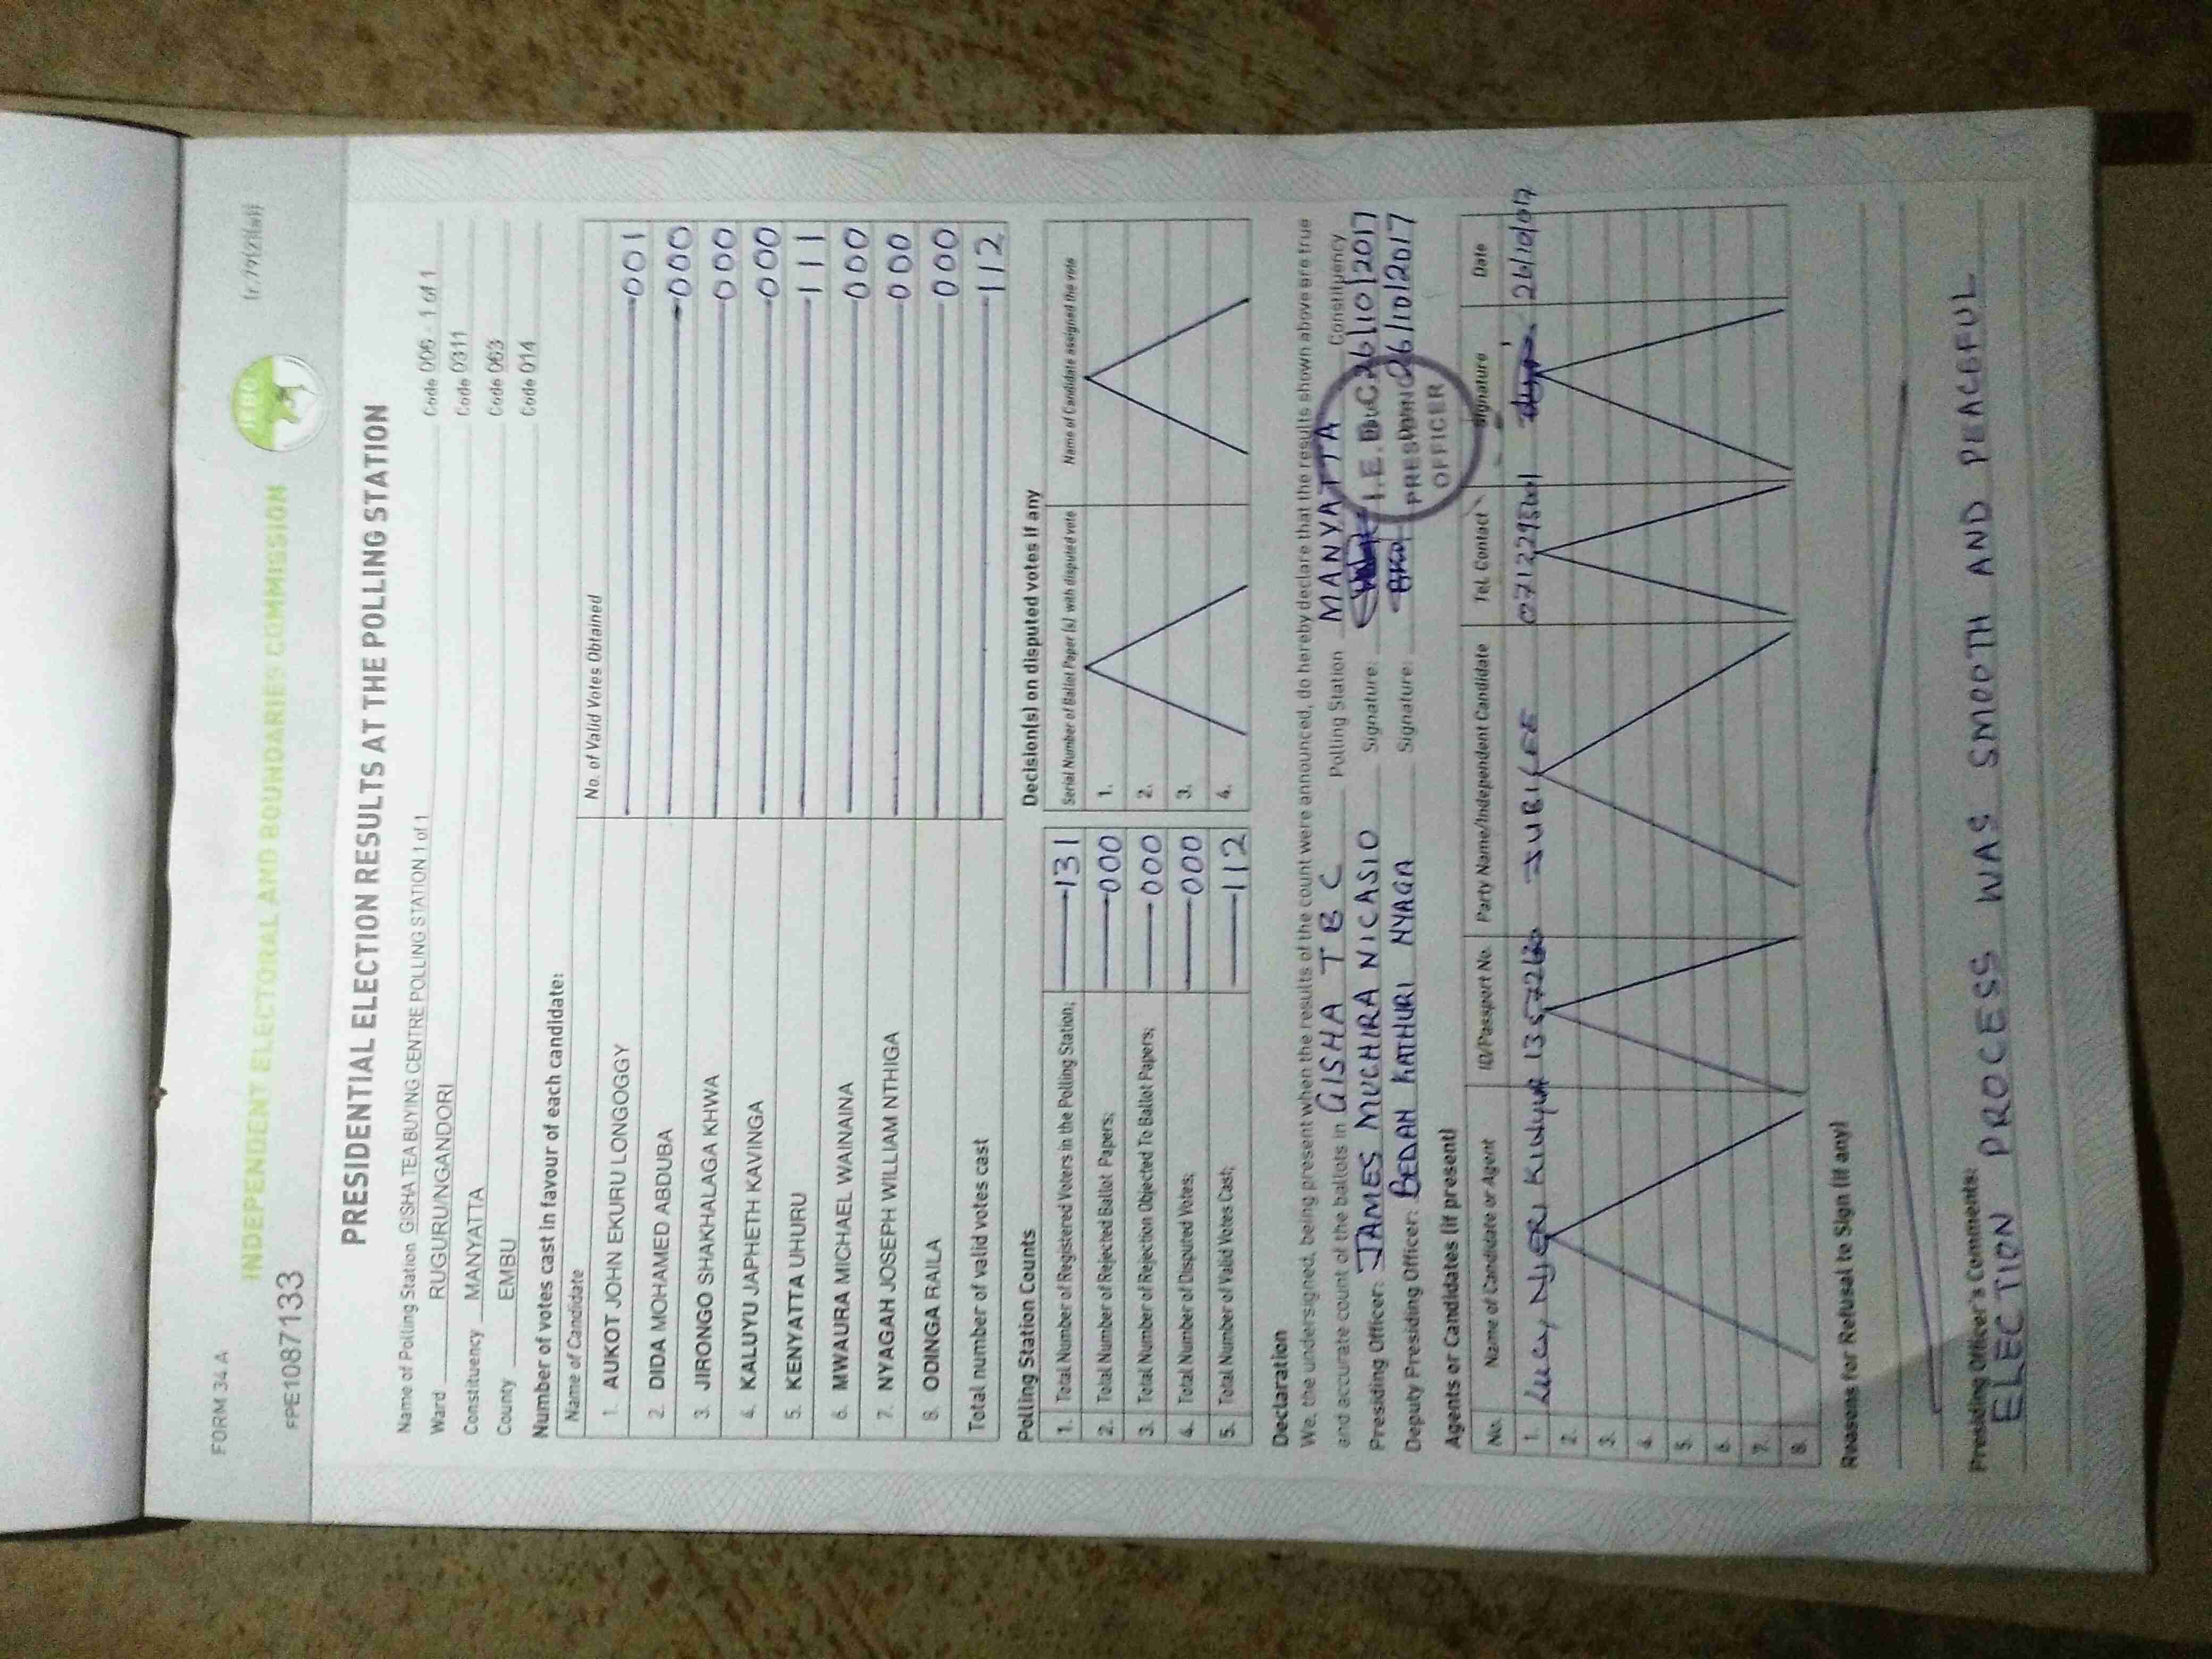 FORM 34 A
INDEPENDENT ELECTORAL AND BOUNDARIES COMMISSION
IEBC
FPE1087133
PRESIDENTIAL ELECTION RESULTS AT THE POLLING STATION
Name of Polling Station GISHA TEA BUYING CENTRE POLLING STATION 1 of 1 Code 006 - 1 of 1
Ward RUGURU/NGANDORI Code 0311
Constituency MANYATTA Code 063
County EMBU Code 014
Number of votes cast in favour of each candidate:
Name of Candidate No. of Valid Votes Obtained
1. AUKOT JOHN EKURU LONGOGGY 001
2. DIDA MOHAMED ABDUBA 000
3. JIRONGO SHAKHALAGA KHWA 000
4. KALUYU JAPHETH KAVINGA 000
5. KENYATTA UHURU 111
6. MWAURA MICHAEL WAINAINA 000
7. NYAGAH JOSEPH WILLIAM NTHIGA 000
8. ODINGA RAILA 000
Total number of valid votes cast 112
Polling Station Counts
1. Total Number of Registered Voters in the Polling Station; 131
2. Total Number of Rejected Ballot Papers; 000
3. Total Number of Rejection Objected To Ballot Papers; 000
4. Total Number of Disputed Votes; 000
5. Total Number of Valid Votes Cast; 112
Decision(s) on disputed votes if any
Serial Number of Ballot Paper (s) with disputed vote Name of Candidate assigned the vote
1.
2.
3.
4.
Declaration
We, the undersigned, being present when the results of the count were announced, do hereby declare that the results shown above are true
and accurate count of the ballots in GISHA T B C Polling Station MANYATTA Constituency
Presiding Officer: JAMES MUCHIRA NICASIO Signature: 26/10/2017
Deputy Presiding Officer: BEDAH KATHURI NYAGA Signature: 26/10/2017
I.E.B.C
PRESIDING
OFFICER
Agents or Candidates (if present)
No. Name of Candidate or Agent ID/Passport No. Party Name/Independent Candidate Tel. Contact Signature Date
1. Lucy Njeri JUBILEE 26/10/017
2.
3.
4.
5.
6.
7.
8.
Reasons for Refusal to Sign (if any)
Presiding Officer's Comments:
ELECTION PROCESS WAS SMOOTH AND PEACEFUL